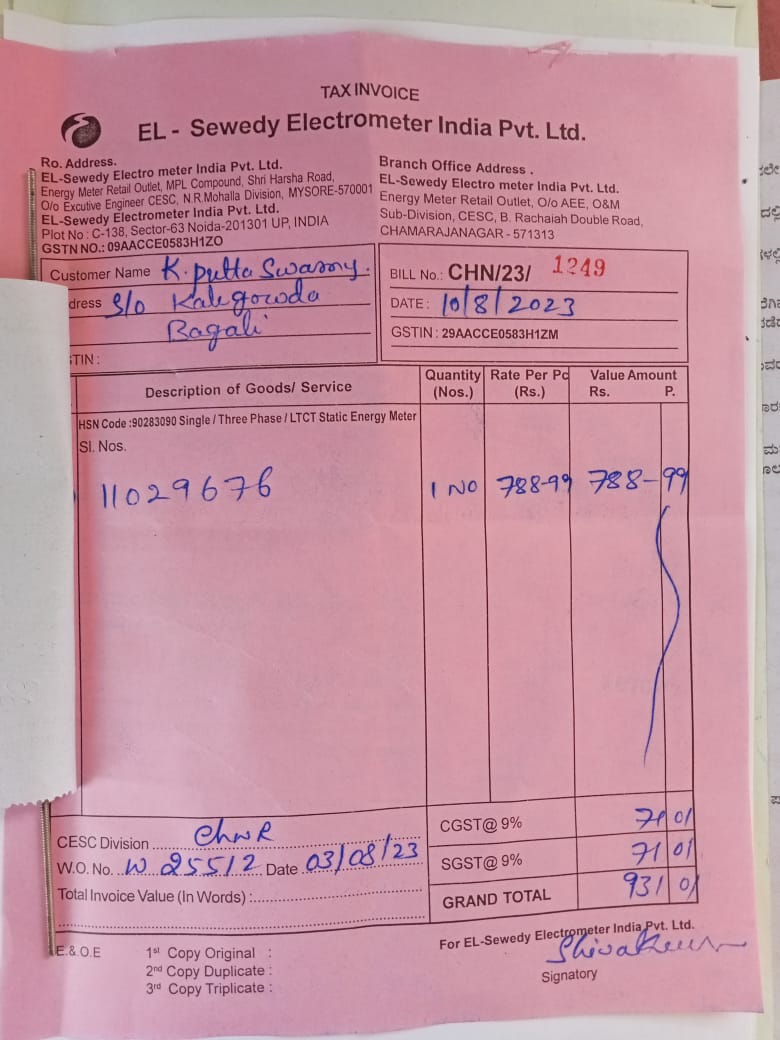 TAX INVOICE
EL - Sewedy Electrometer India Pvt. Ltd.
Ro. Address.
EL-Sewedy Electro meter India Pvt. Ltd.
Energy Meter Retail Outlet, MPL Compound, Shri Harsha Road,
O/o Excutive Engineer CESC, N.R.Mohalla Division, MYSORE-570001
EL-Sewedy Electrometer India Pvt. Ltd.
Plot No : C-138, Sector-63 Noida-201301 UP, INDIA
GSTN NO.: 09AACCE0583H1ZO
Branch Office Address .
EL-Sewedy Electro meter India Pvt. Ltd.
Energy Meter Retail Outlet, O/o AEE, O&M
Sub-Division, CESC, B. Rachaiah Double Road,
CHAMARAJNAGAR - 571313
Customer Name K. Putta Swamy.
dress S/o Kalegowda
Bagali
TIN :
BILL No.: CHN/23/ 1249
DATE : 10/8/2023
GSTIN : 29AACCE0583H1ZM
Description of Goods/ Service Quantity (Nos.) Rate Per Pc (Rs.) Value Amount Rs. P.
HSN Code :90283090 Single / Three Phase / LTCT Static Energy Meter
Sl. Nos.
11029676 1 NO 788-99 788-99
CESC Division ChNR
W.O. No. W 25512 Date 03/08/23
Total Invoice Value (In Words) :
CGST@ 9% 71 01
SGST@ 9% 71 01
GRAND TOTAL 931 01
E.& O.E
1st Copy Original :
2nd Copy Duplicate :
3rd Copy Triplicate :
For EL-Sewedy Electrometer India Pvt. Ltd.
Signatory